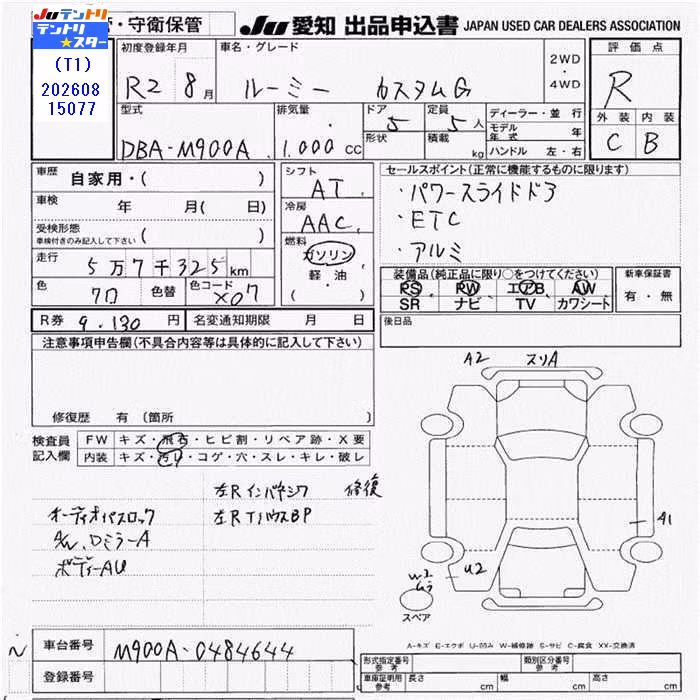 テントリ テントリ
テントリ★スター
(T1)
202608
15077
・守衛保管
JU 愛知 出品申込書 JAPAN USED CAR DEALERS ASSOCIATION
初度登録年月
R2 8月
車名・グレード
ルーミー カスタムG
2WD
・
4WD
評価点
R
外装 内装
C B
型式
DBA-M900A
排気量
1.000 CC
ドア
5
形状
定員
5人
積載
kg
ディーラー・並行
モデル年式 年
ハンドル 左・右
車歴
自家用・( )
車検 年 月( 日)
受検形態
車検付きのみ記入して下さい ( )
走行 5万7千325km
色 クロ 色替 色コード X07
シフト
AT
冷房
AAC
燃料
ガソリン
軽・油
・( )
セールスポイント(正常に機能するものに限ります)
・パワースライドドア
・ETC
・アルミ
装備品(純正品に限り○をつけてください)
PS PW エアB AW
SR ナビ TV カワシート
新車保証書
有・無
R券 9.130円 名変通知期限 月 日
後日品
注意事項申告欄(不具合内容等は具体的に記入して下さい)
修復歴 有(箇所 )
検査員
記入欄
FW キズ・飛石・ヒビ割・リペア跡・X要
内装 キズ・汚れ・コゲ・穴・スレ・キレ・破レ
左Rインパネシワ 修復
オーディオパスロック 左RTハウスBP
ドミラーA
ボディーAU
A2 スリA
A1
W2
U2
スペア
A-キズ E-エクボ U-凹み W-補修跡 S-サビ C-腐食 XX-交換済
車台番号 M900A-0484644
登録番号
形式指定番号 参考
類別区分番号 参考
車庫証明用 参考 長さ cm 幅 cm 高さ cm